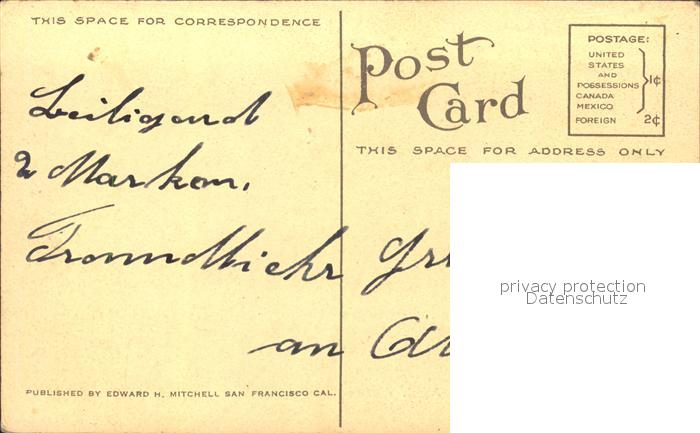 THIS SPACE FOR CORRESPONDENCE
Post
Card
POSTAGE:
UNITED
STATES
AND
POSSESSIONS
CANADA
MEXICO
1¢
FOREIGN 2¢
THIS SPACE FOR ADDRESS ONLY
Beiligend
2 Marken.
an
privacy protection
Datenschutz
PUBLISHED BY EDWARD H. MITCHELL SAN FRANCISCO CAL.